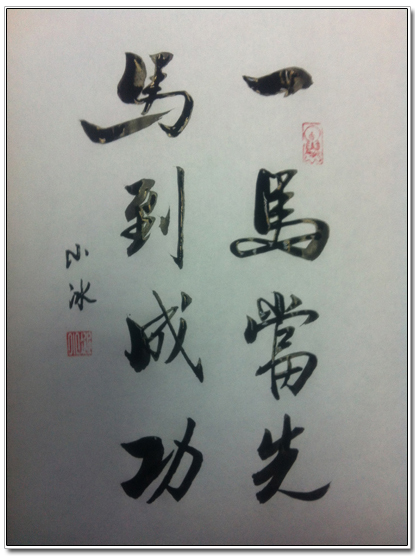 一馬當先
馬到成功